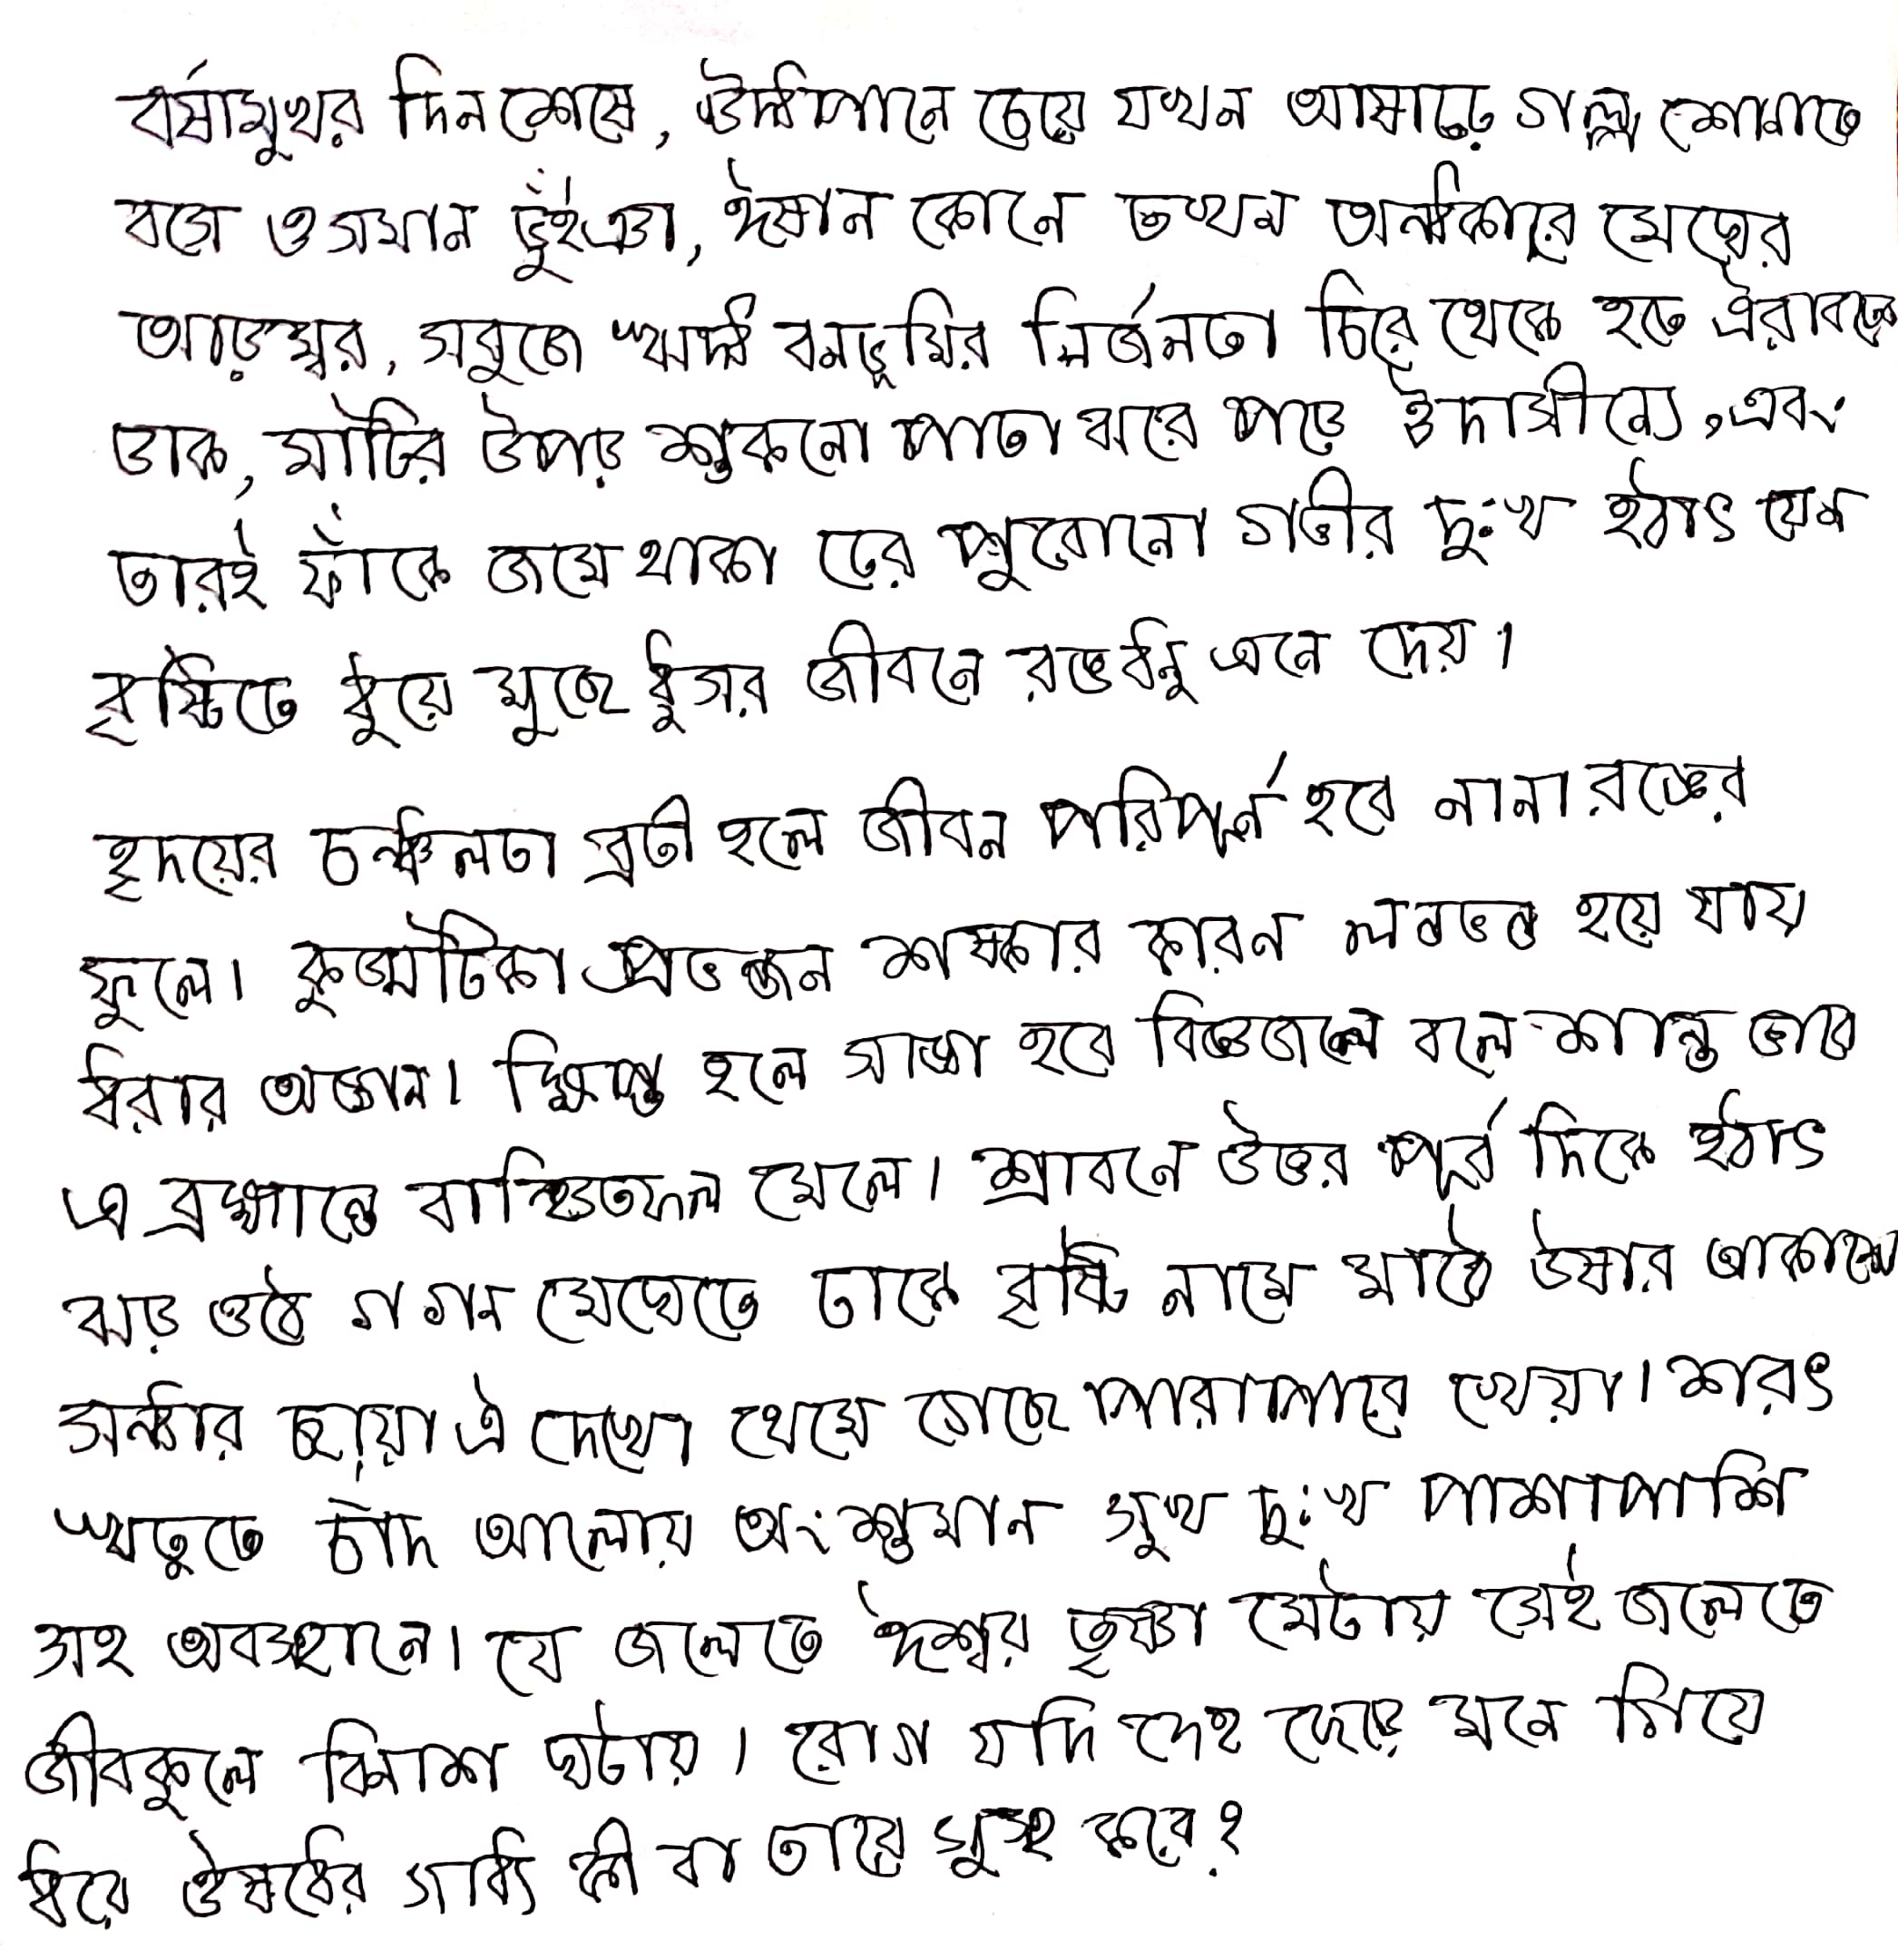 বর্ষামুখর দিনশেষে, উর্দ্ধপানে চেয়ে যখন আষাঢ়ে গল্প শোনাতে
বসে ওসমান ভুঁইঞা, ঈষান কোনে তখন অন্ধকার মেঘের
আড়ম্বর, সবুজে ঋদ্ধ বনভূমির নির্জনতা চিরে থেকে হতে ঐরাবতের
ডাক, মাটির উপর শুকনো পাতা ঝরে পড়ে ঔদাসীন্যে, এবং
তারই ফাঁকে জমে থাকা ঢের পুরোনো গভীর দুঃখ হঠাৎ যেন
বৃষ্টিতে ধুয়ে মুছে ধুসর জীবনে রঙধনু এনে দেয়।
হৃদয়ের চঞ্চলতা ব্রতী হলে জীবন পরিপূর্ন হবে নানা রঙের
ফুলে। কুজ্ঝটিকা প্রভঞ্জন শঙ্কার কারন লণ্ডভণ্ড হয়ে যায়
ধরার অঙ্গন। ক্ষিপ্ত হলে সাঙ্গ হবে বিজ্ঞজনে বলে শান্ত ভাবে
এ ব্রহ্মাণ্ডে বাঞ্ছিতফল মেলে। শ্রাবনে উত্তর পূর্ব দিকে হঠাৎ
ঝড় ওঠে গগন মেঘেতে ঢাকে বৃষ্টি নামে মাঠে উষার আকাশে
সন্ধ্যার ছায়া ঐ দেখো থেমে গেছে পারাপারে খেয়া। শরৎ
ঋতুতে চাঁদ আলোয় অংশুমান সুখ দুঃখ পাশাপাশি
সহ অবস্থানে। যে জলেতে ঈশ্বর তৃষ্ণা মেটায় সেই জলেতে
জীবকুলে বিনাশ ঘটায়। রোগ যদি দেহ ছেড়ে মনে গিয়ে
ধরে ঔষধের সাধ্য কী বা তারে সুস্থ করে?